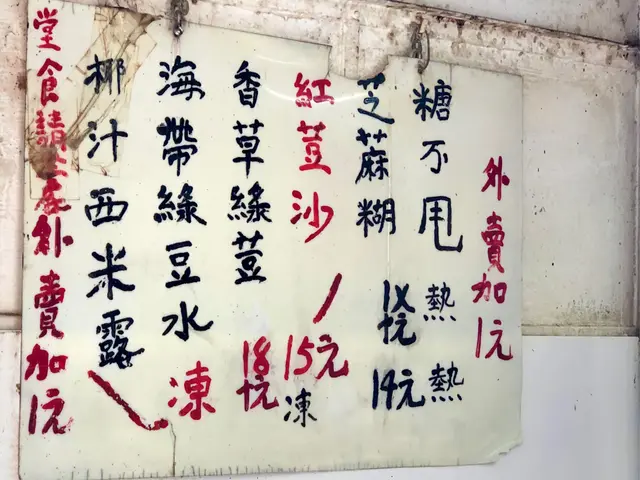 外賣加1元
糖不甩 熱 18元
芝麻糊 熱 14元
紅荳沙 15元 凍
香草綠荳 18元
海帶綠豆水 凍
椰汁西米露
堂食請 外賣加1元